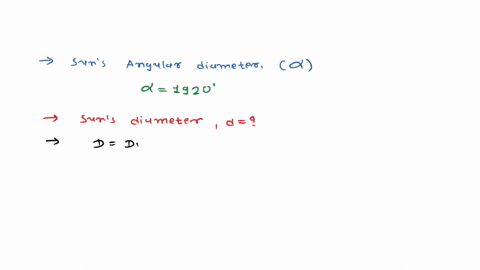 → Sun's Angular diameter. (α)
α = 1920'
→ Sun's diameter, d = ?
→ D = D.